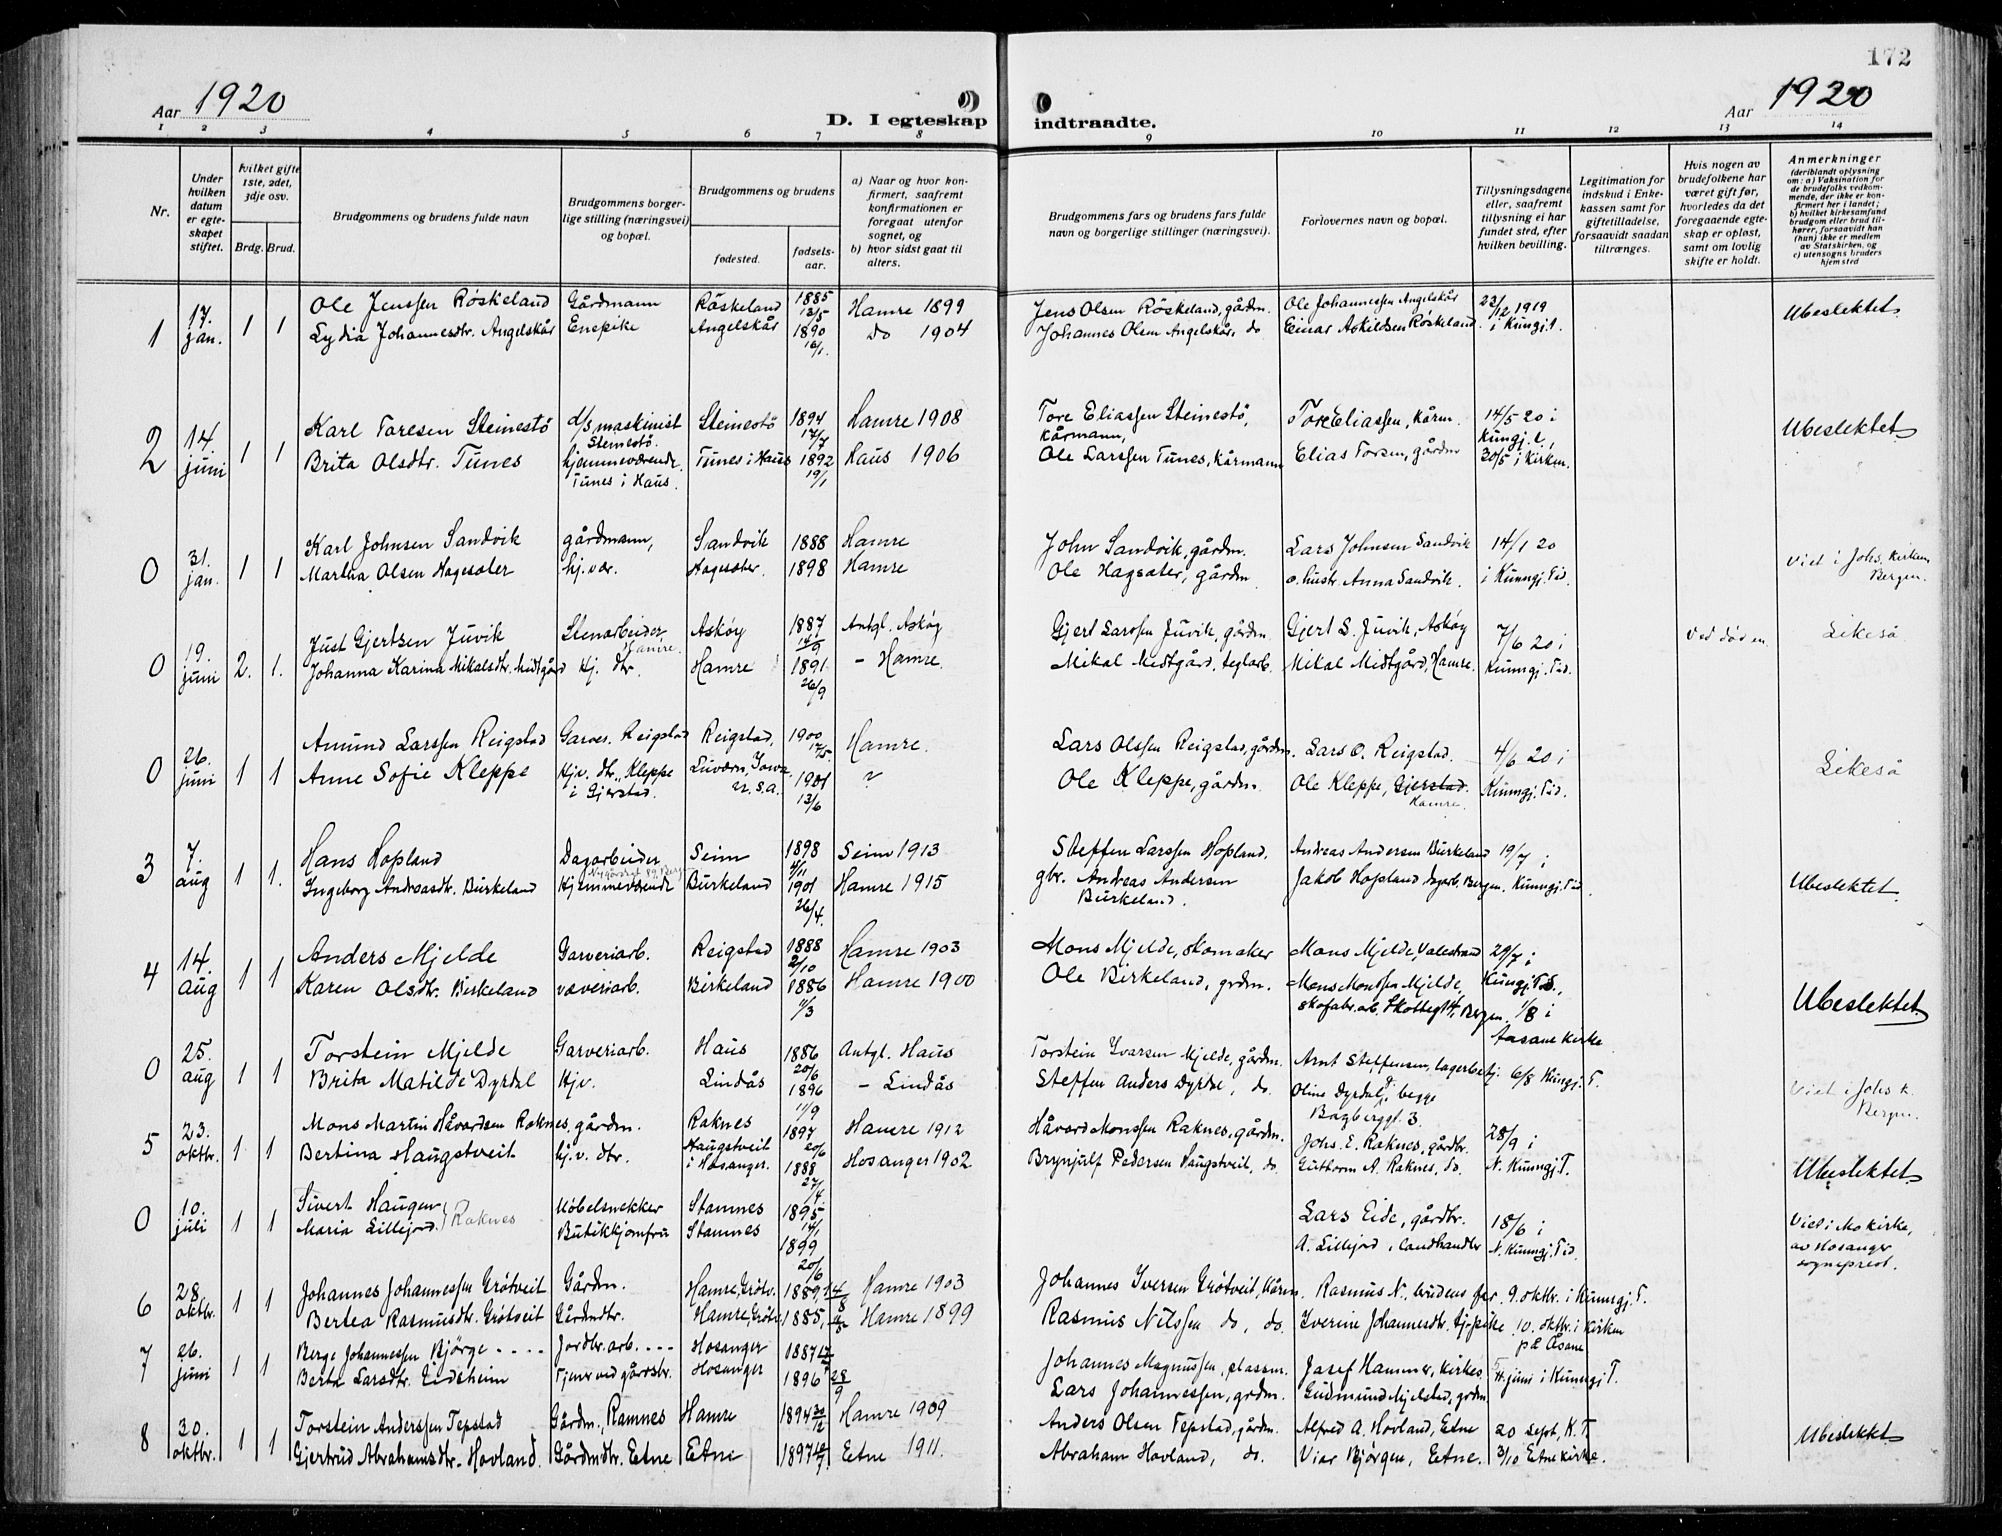 172
Aar 1920
D. I egteskap indtraadte.
Aar 1920
1 2 3 4 5 6 7 8 9 10 11 12 13 14
Nr.
Under hvilken datum er egteskapet stiftet.
hvilket gifte 1ste, 2det, 3dje osv.
Brdg. Brud.
Brudgommens og brudens fulde navn
Brudgommens borgerlige stilling (næringsvei) og bopæl.
Brudgommens og brudens
fødested.
fødselsaar.
a) Naar og hvor konfirmert, saafremt konfirmationen er foregaat utenfor sognet, og
b) hvor sidst gaat til alters.
Brudgommens fars og brudens fars fulde navn og borgerlige stillinger (næringsvei).
Forlovernes navn og bopæl.
Tillysningsdagene eller, saafremt tillysning ei har fundet sted, efter hvilken bevilling.
Legitimation for indskud i Enkekassen samt for giftetilladelse, forsaavidt saadan tiltrænges.
Hvis nogen av brudefolkene har været gift før, hvorledes da det foregaaende egteskap er opløst, samt om lovlig skifte er holdt.
Anmerkninger (deriblandt oplysning om: a) Vaksination for de brudefolks vedkommende, der ikke er konfirmert her i landet; b) hvilket kirkesamfund brudgom eller brud tilhører, forsaavidt han (hun) ikke er medlem av Statskirken, og c) utensogns bruders hjemsted
1 17. jan. 1 1 Ole Jenssen Röskeland Gårdmann Röskeland 1885 13/5 Hamre 1899 Jens Olsen Röskeland, gårdm. Ole Johannessen Angelskår 23/12 1919 Ubeslektet
Lydia Johannesdtr. Angelskår Enepike Angelskår 1890 16/1 do 1904 Johannes Olsen Angelskår, do Einar Askildsen Röskeland i Kungj.t.
2 14. juni 1 1 Karl Toresen Steinestö d/s maskinist Steinestö. Steinestö 1894 17/7 Hamre 1908 Tore Eliassen Steinestö, kårmann, Tore Eliassen, kårm. 14/5 20 i Kungj.t., Ubeslektet
Brita Olsdtr. Tunes hjemmeværende Tunes i Haus. Tunes i Haus 1892 19/1 Haus 1906 Ole Larssen Tunes, kårmann Elias Torsen, gårdm 30/5 i Kirken.
0 31. jan. 1 1 Karl Johnsen Sandvik gårdmann, Sandvik 1888 Hamre John Sandvik, gårdm. Lars Johnsen Sandvik 14/1 20 Viet i Johs. Kirken Bergen.
Martha Olsen Hagesæter hj.vær. Hagesæter. 1898 Hamre Ole Hagsæter, gårdm o. hustr. Anna Sandvik. i Kunngj. Tid.
0 19. juni 2. 1. Just Gjertsen Juvik Stenarbeider Hamre. Askøy 1887 14/9 Antgl. Askøy Gjert Larssen Juvik, gårdm. Gjert L. Juvik, Askøy 7/6 20 i Ved død en Likeså
Johanna Karina Mikalsdtr. Midtgård Hj. dtr. Hamre 1891 26/9 – Hamre. Mikal Midtgård, teglarb. Mikal Midtgård, Hamre. Kunngj. Tid.
0 26. juni 1 1 Amund Larssen Reigstad Garver. Reigstad Reigstad, 1900 17/5. Hamre. Lars Olssen Reigstad, gårdm. Lars O. Reigstad. 4/6 20 i Likeså
Anne Sofie Kleppe Hjv. dtr., Kleppe i Gjerstad. U.S.A. 1901 13/6 ? Ole Kleppe, gårdm. Ole Kleppe, Gjerstad. Hamre. Kunngj. Tid.
3 7. aug 1 1. Hans Hopland Dagarbeider Seim 1898 4/11 Seim 1913 Steffen Larssen Hopland, gbr. Andreas Andersen Burkeland 19/7 i Ubeslektet
Ingeborg Andreasdtr. Burkeland Hjemmeværende Burkeland 1901 26/4. Hamre 1915 Andreas Andersen Burkeland. Jakob Hopland dagarb. Bergen. Kunngj. Tid.
4 14. aug 1 1 Anders Mjelde Garveriarb. Reigstad 1888 2/10 Hamre 1903 Mons Mjelde, skomaker Mons Mjelde, Valestrand 29/7 i Kungj. Tid., Ubeslektet
Karen Olsdtr. Birkeland væveriarb. Birkeland 1886 11/3 Hamre 1900 Ole Birkeland, grdm. Mons Monssen Mjelde, skofabr.arb. Bergen. 1/8 i Aasane Kirke
0 25. aug 1 1 Torstein Mjelde Garveriarb. Haus 1886 20/6 Antgl. Haus Torstein Ivarsen Mjelde, gårdm. Arnt Steffensen, lagerbetj. 6/8 Kungj. T. Viet i Johs k. Bergen.
Brita Matilde Dyrdal Hjv. Lindås 1896 11/9 – Lindås Steffen Anders Dyrdal, do. Oline Dyrdal, begge
5 23. oktbr. 1 1 Mons Martin Håvardsen Raknes, gårdm. Raknes 1897 20/6 Hamre 1912 Håvard Monssen Raknes, gårdm. Johs. E. Raknes, gårdbr. 28/9 i Ubeslektet
Bertina Haugstveit hj.v. dtr. Haugstveit i Hosanger. 1888 27/4. Hosanger 1902 Brynjulf Pedersen Haugstveit, do. Guthorm A. Raknes, do. N. Kunngj. T.
0 10. juli 1 1 Sivert Haugen } Raknes Möbelsnekker Stamnes 1895 14/1 Lars Eide, gårdbr. 18/6 i Viet i Mo kirke, av Hosanger sogneprest.
Maria Lillejord Butikkjomfru Stamnes 1899 20/6 A. Lillejord, landhandler N. Kunngj. Tid.
6 28. oktbr. 1 1 Johannes Johannessen Grötveit Gårdm. Hamre, Grötv. 1889, 14/8 Hamre 1903 Johannes Iversen Grötveit, kårm. Rasmus N., brudens far. 9. oktbr. i Kunngj. T.
Bertea Rasmusdtr. Grötveit Gårdmdtr. Hamre, Grötv. 1885, Hamre 1899 Rasmus Nilssen do, do. Iverine Johannesdtr. 10. oktbr. i Kirken på Åsane
7 26. juni 1 1 Berge Johannessen Bjørge - - - - Jordbr. arb. - - - - Hosanger 1887 Johannes Magnussen, plassm. Josef Hammer, kirkes. juni i Kunngj T.
Berta Larsdtr. Eidsheim Tjener ved gårdsbr. Hosanger 1896 28/9 Lars Johannessen, grdm. Gudmund Mjelstad, grdm.
8 30. oktbr. 1 1 Torstein Anderssen Tepstad Gårdm., Ramnes Hamre 1894 30/12 Hamre 1909 Anders Olsen Tepstad, gårdm. Alfred A. Hovland, Etne 20 sept, K. T. Ubeslektet
Gjertrud Abrahamsdtr. Hovland. Gårdmdtr. Etne Etne 1897 Etne 1911. Abraham Hovland, do. Viar Bjørgen, Etne. 3/10 Etne kirke.